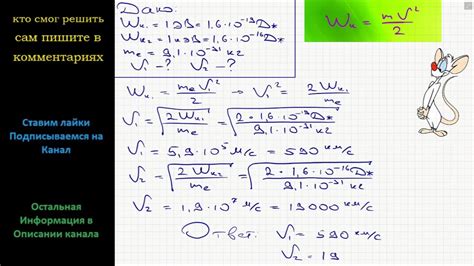 кто смог решить
сам пишите в
комментариях
Ставим лайки
Подписываемся на
Канал
Остальная
Информация в
Описании канала
Дано:
Wк₁ = 1 эВ = 1,6·10⁻¹⁹ Дж
Wк₂ = 1 кэВ = 1,6·10⁻¹⁶ Дж
mₑ = 9,1·10⁻³¹ кг
V₁ - ? V₂ - ?
Wк = mV²/2
Wк₁ = mₑV²/2 → V₁² = 2Wк₁/mₑ
V₁ = √(2Wк₁/mₑ) = √(2·1,6·10⁻¹⁹ Дж/9,1·10⁻³¹ кг)
V₁ = 5,9·10⁵ м/с = 590 км/с
V₂ = √(2Wк₂/mₑ) = √(2·1,6·10⁻¹⁶ Дж/9,1·10⁻³¹ кг)
V₂ = 1,9·10⁷ м/с = 19000 км/с
Ответ: V₁ = 590 км/с
V₂ = 19